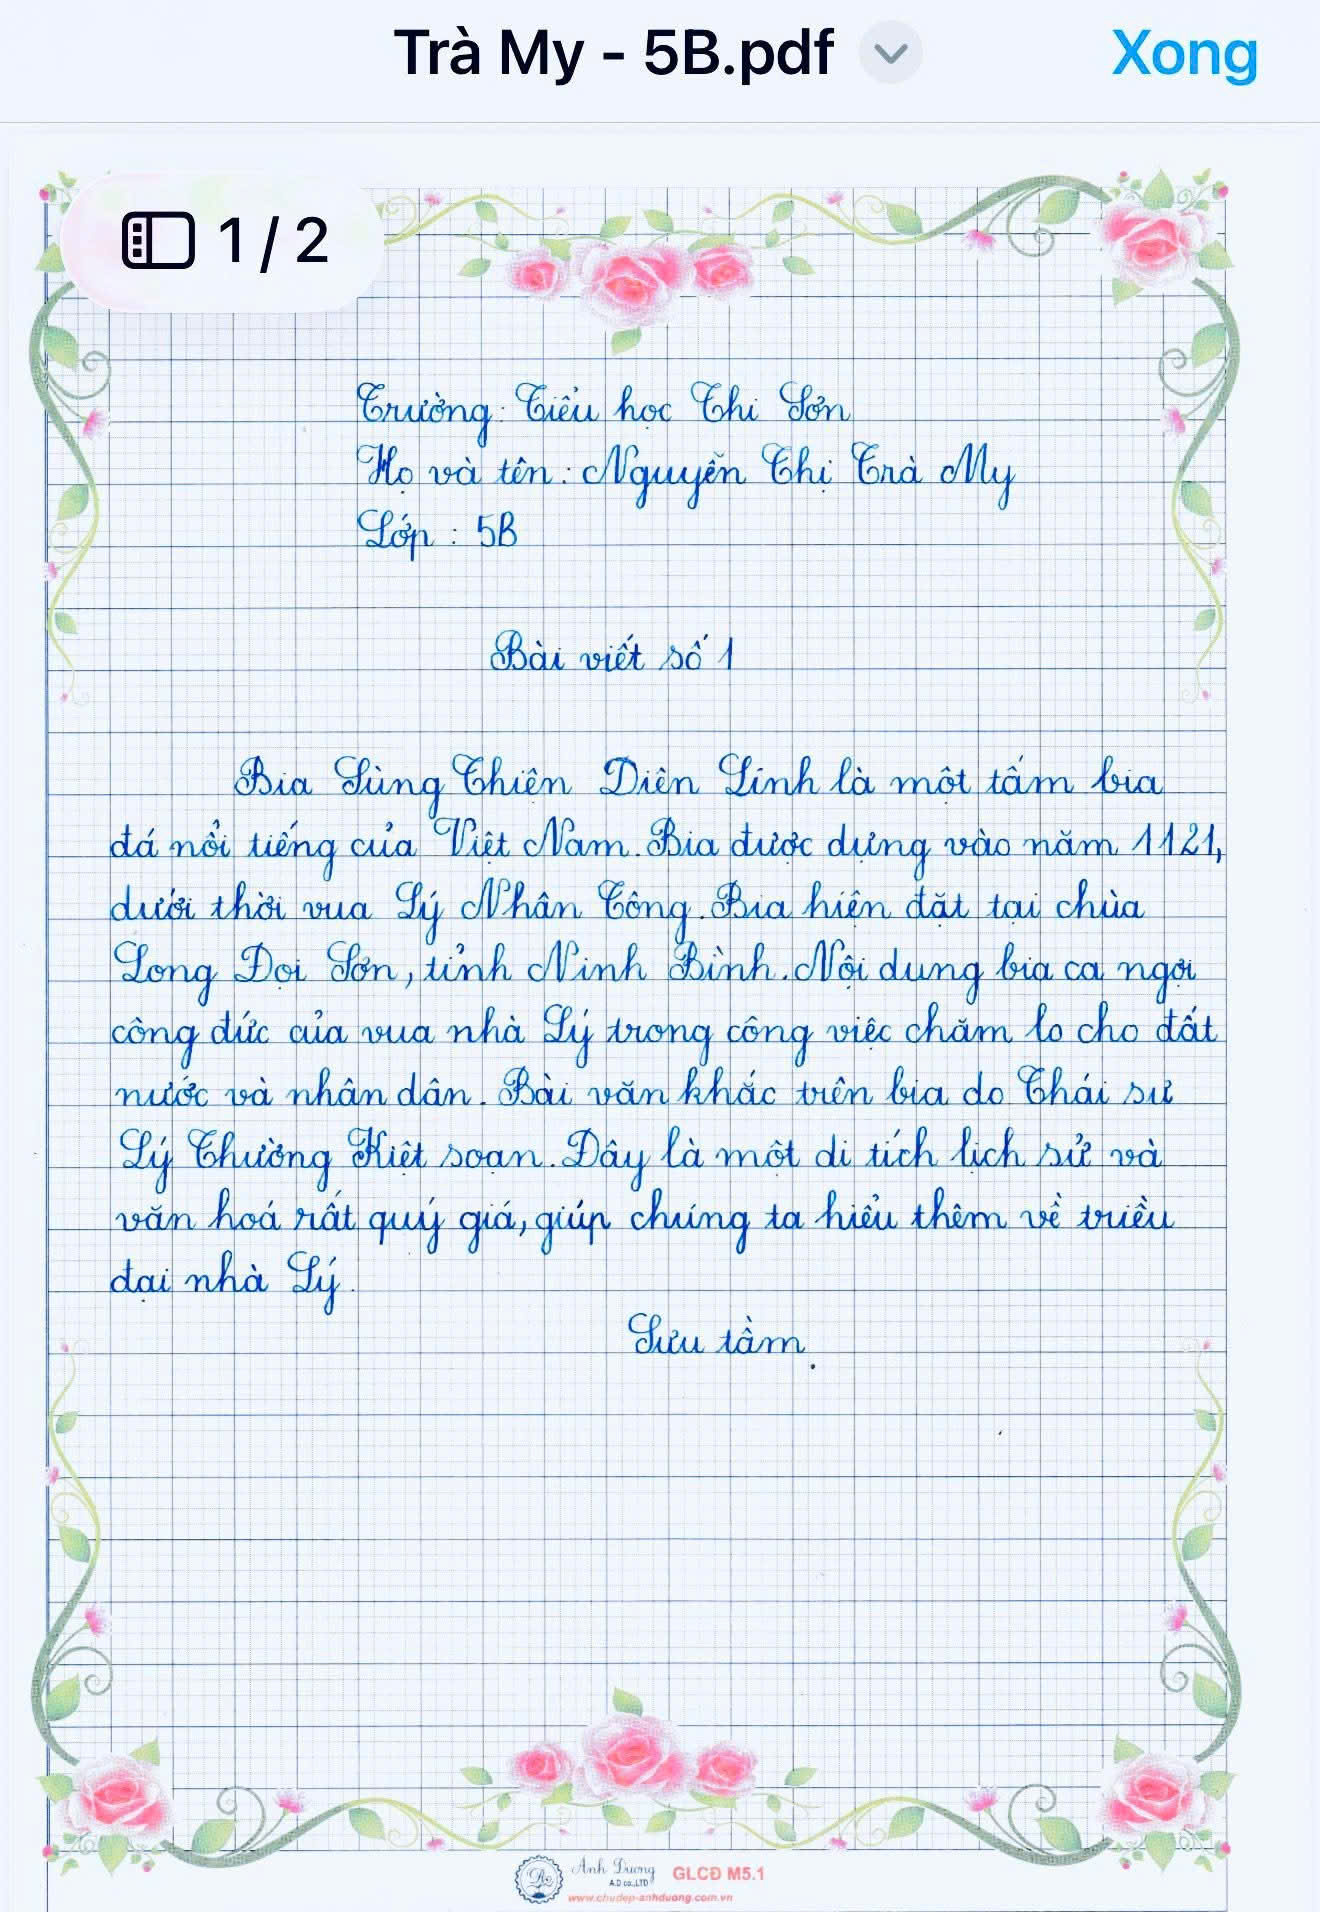 Trà My - 5B.pdf
Xong
1 / 2
Trường: Tiểu học Thi Sơn
Họ và tên: Nguyễn Thị Trà My
Lớp : 5B
Bài viết số 1
Bia Sùng Thiện Diên Linh là một tấm bia
đá nổi tiếng của Việt Nam. Bia được dựng vào năm 1121,
dưới thời vua Lý Nhân Tông. Bia hiện đặt tại chùa
Long Đọi Sơn, tỉnh Ninh Bình. Nội dung bia ca ngợi
công đức của vua nhà Lý trong công việc chăm lo cho đất
nước và nhân dân. Bài văn khắc trên bia do Thái sư
Lý Thường Kiệt soạn. Đây là một di tích lịch sử và
văn hoá rất quý giá, giúp chúng ta hiểu thêm về triều
đại nhà Lý.
Sưu tầm.
Ánh Dương
A.D co.,LTD
GLCĐ M5.1
www.chudep-anhduong.com.vn